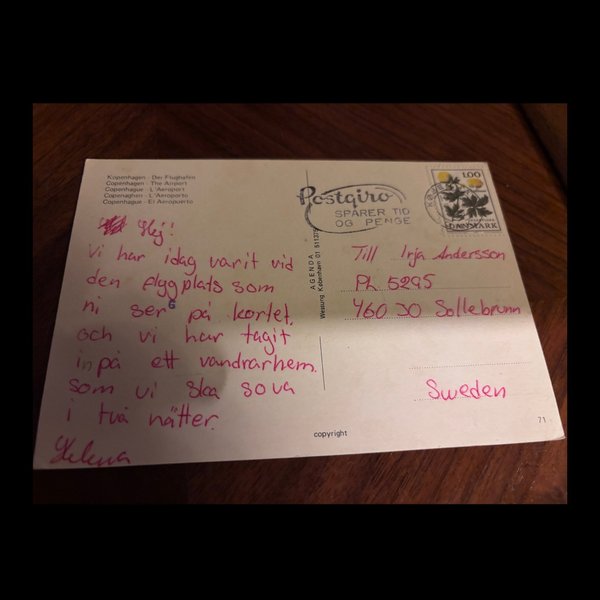 Kopenhagen - Der Flughafen
Copenhagen - The Airport
Copenhague - L'Aeroport
Copenaghen - L'Aeroporto
Copenhague - El Aeropuerto
Hej!
Vi har idag varit vid
den flygplats som
ni ser på kortet,
och vi har tagit
in på ett vandrarhem.
som vi ska sova
i två nätter.
Helena
AGENDA
Wessung København 01 511375
Postgiro
SPARER TID
OG PENGE
100
DANMARK
Till Irja Andersson
Ph 5295
460 30 Sollebrunn
Sweden
copyright
71